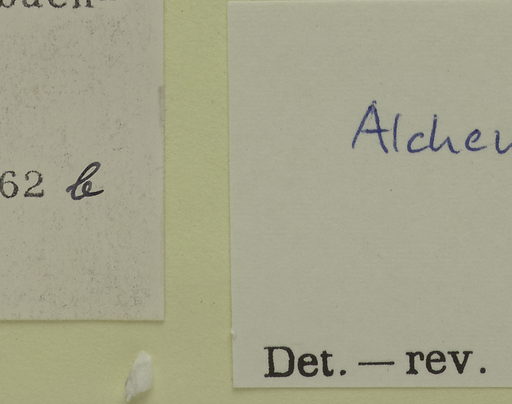 62 b
Alchem
Det. — rev.